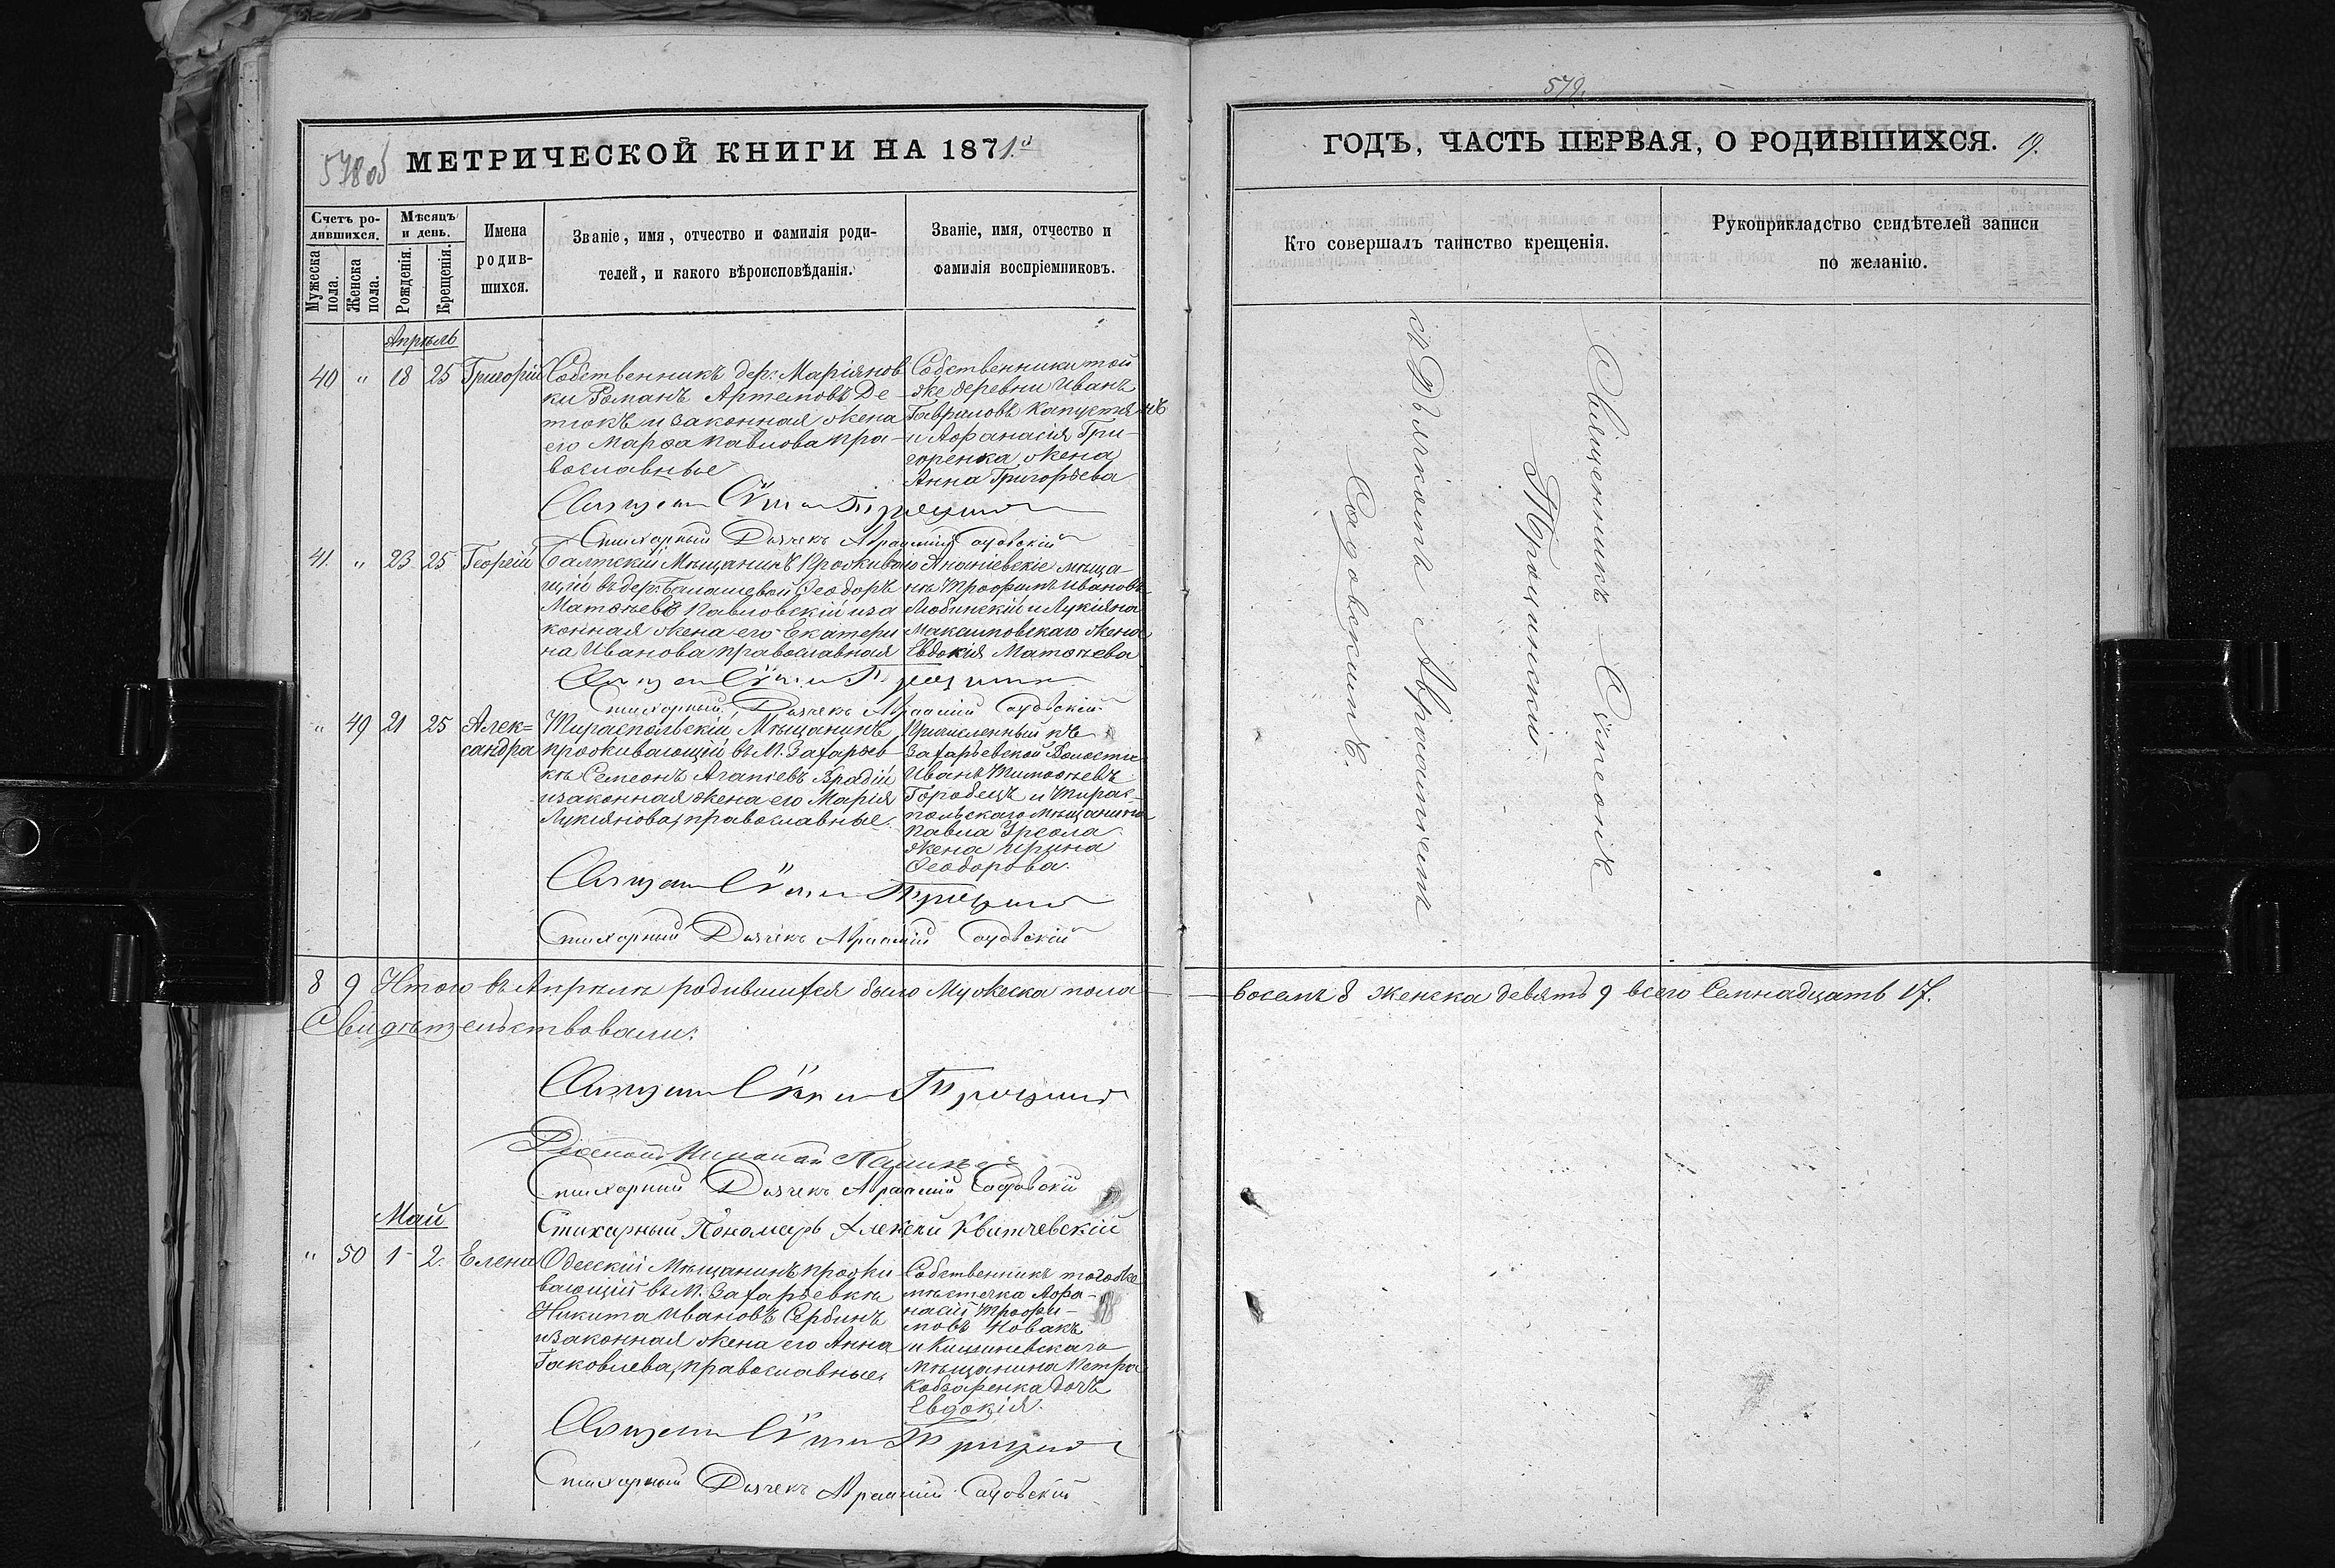 578об МЕТРИЧЕСКОЙ КНИГИ НА 1871.й
Счетъ ро-
дившихся.
Мужеска пола.
Женска пола.
Мѣсяцъ
и день.
Рожденія.
Крещенія.
Имена
родив-
шихся.
Званіе, имя, отчество и фамилія роди-
телей, и какого вѣроисповѣданія.
Званіе, имя, отчество и
фамилія воспріемниковъ.
Апрѣль
40 " 18 25 Григорій
Собственникъ дер: Маріянов
ки Романъ Артемовъ Де-
тюкъ и законная жена
его Марѳа Павлова пра-
вославные
Собственники той
же деревни Иванъ
Гавриловъ Капустянъ
и Афанасія Гри-
горенка жена
Анна Григорьева
Стихарный Дьячекъ Авраамій Садовскій
41. " 23 25 Георгій
Балтскій Мѣщанинъ проживаю
щій въ дер: Балашевой Ѳеодоръ
Матѳѣевъ Павловскій и за
конная жена его Екатери
на Иванова православная
Ананіевскіе мѣща-
нъ Трофимъ Ивановъ
Любинскій и Лукіяна
Максимовскаго жена
Евдокія Матѳѣева
Стихарный Дьячекъ Авраамій Садовскій
" 49 21 25 Алек=
сандра
Тираспольскій Мѣщанинъ
проживающій въ М. Захарьев
кѣ Семеонъ Агапіевъ Брадій
и законная жена его Марія
Лукіянова, православные.
Причисленный къ
Захарьевской Волости
Иванъ Тимоѳѣевъ
Городецъ и Тирас-
польскаго мѣщанина
Павла Урсола
жена Ирина
Ѳеодорова.
Стихарный Дьячекъ Авраамій Садовскій
8 9 Итого въ Апрѣлѣ родившихся было Мужеска пола
Свидѣтельствовали:
Діаконъ Николай
Стихарный Дьячекъ Авраамій Садовскій
Стихарный Пономарь Алексѣй Квитчевскій
Май
" 50 1 2. Елена
Одесскій Мѣщанинъ прожи
вающій въ М. Захарьевкѣ
Никита Ивановъ Сербинъ
и законная жена его Анна
Іаковлева, православные.
Собственникъ тогоже
мѣстечка Афа-
насій Трофи-
мовъ Новакъ
и Кишиневскаго
мѣщанина Петра
Кобзаренка дочь
Евдокія.
Стихарный Дьячекъ Авраамій Садовскій
579.
ГОДЪ, ЧАСТЬ ПЕРВАЯ, О РОДИВШИХСЯ. 19.
Кто совершалъ таинство крещенія.
Рукоприкладство свидѣтелей записи
по желанію.
Священникъ Сѵмеонъ
Троцинскій
съ Дьячкомъ Авраамiемъ
Садовскимъ.
восемь 8 женска девять 9 всего Семнадцать 17.